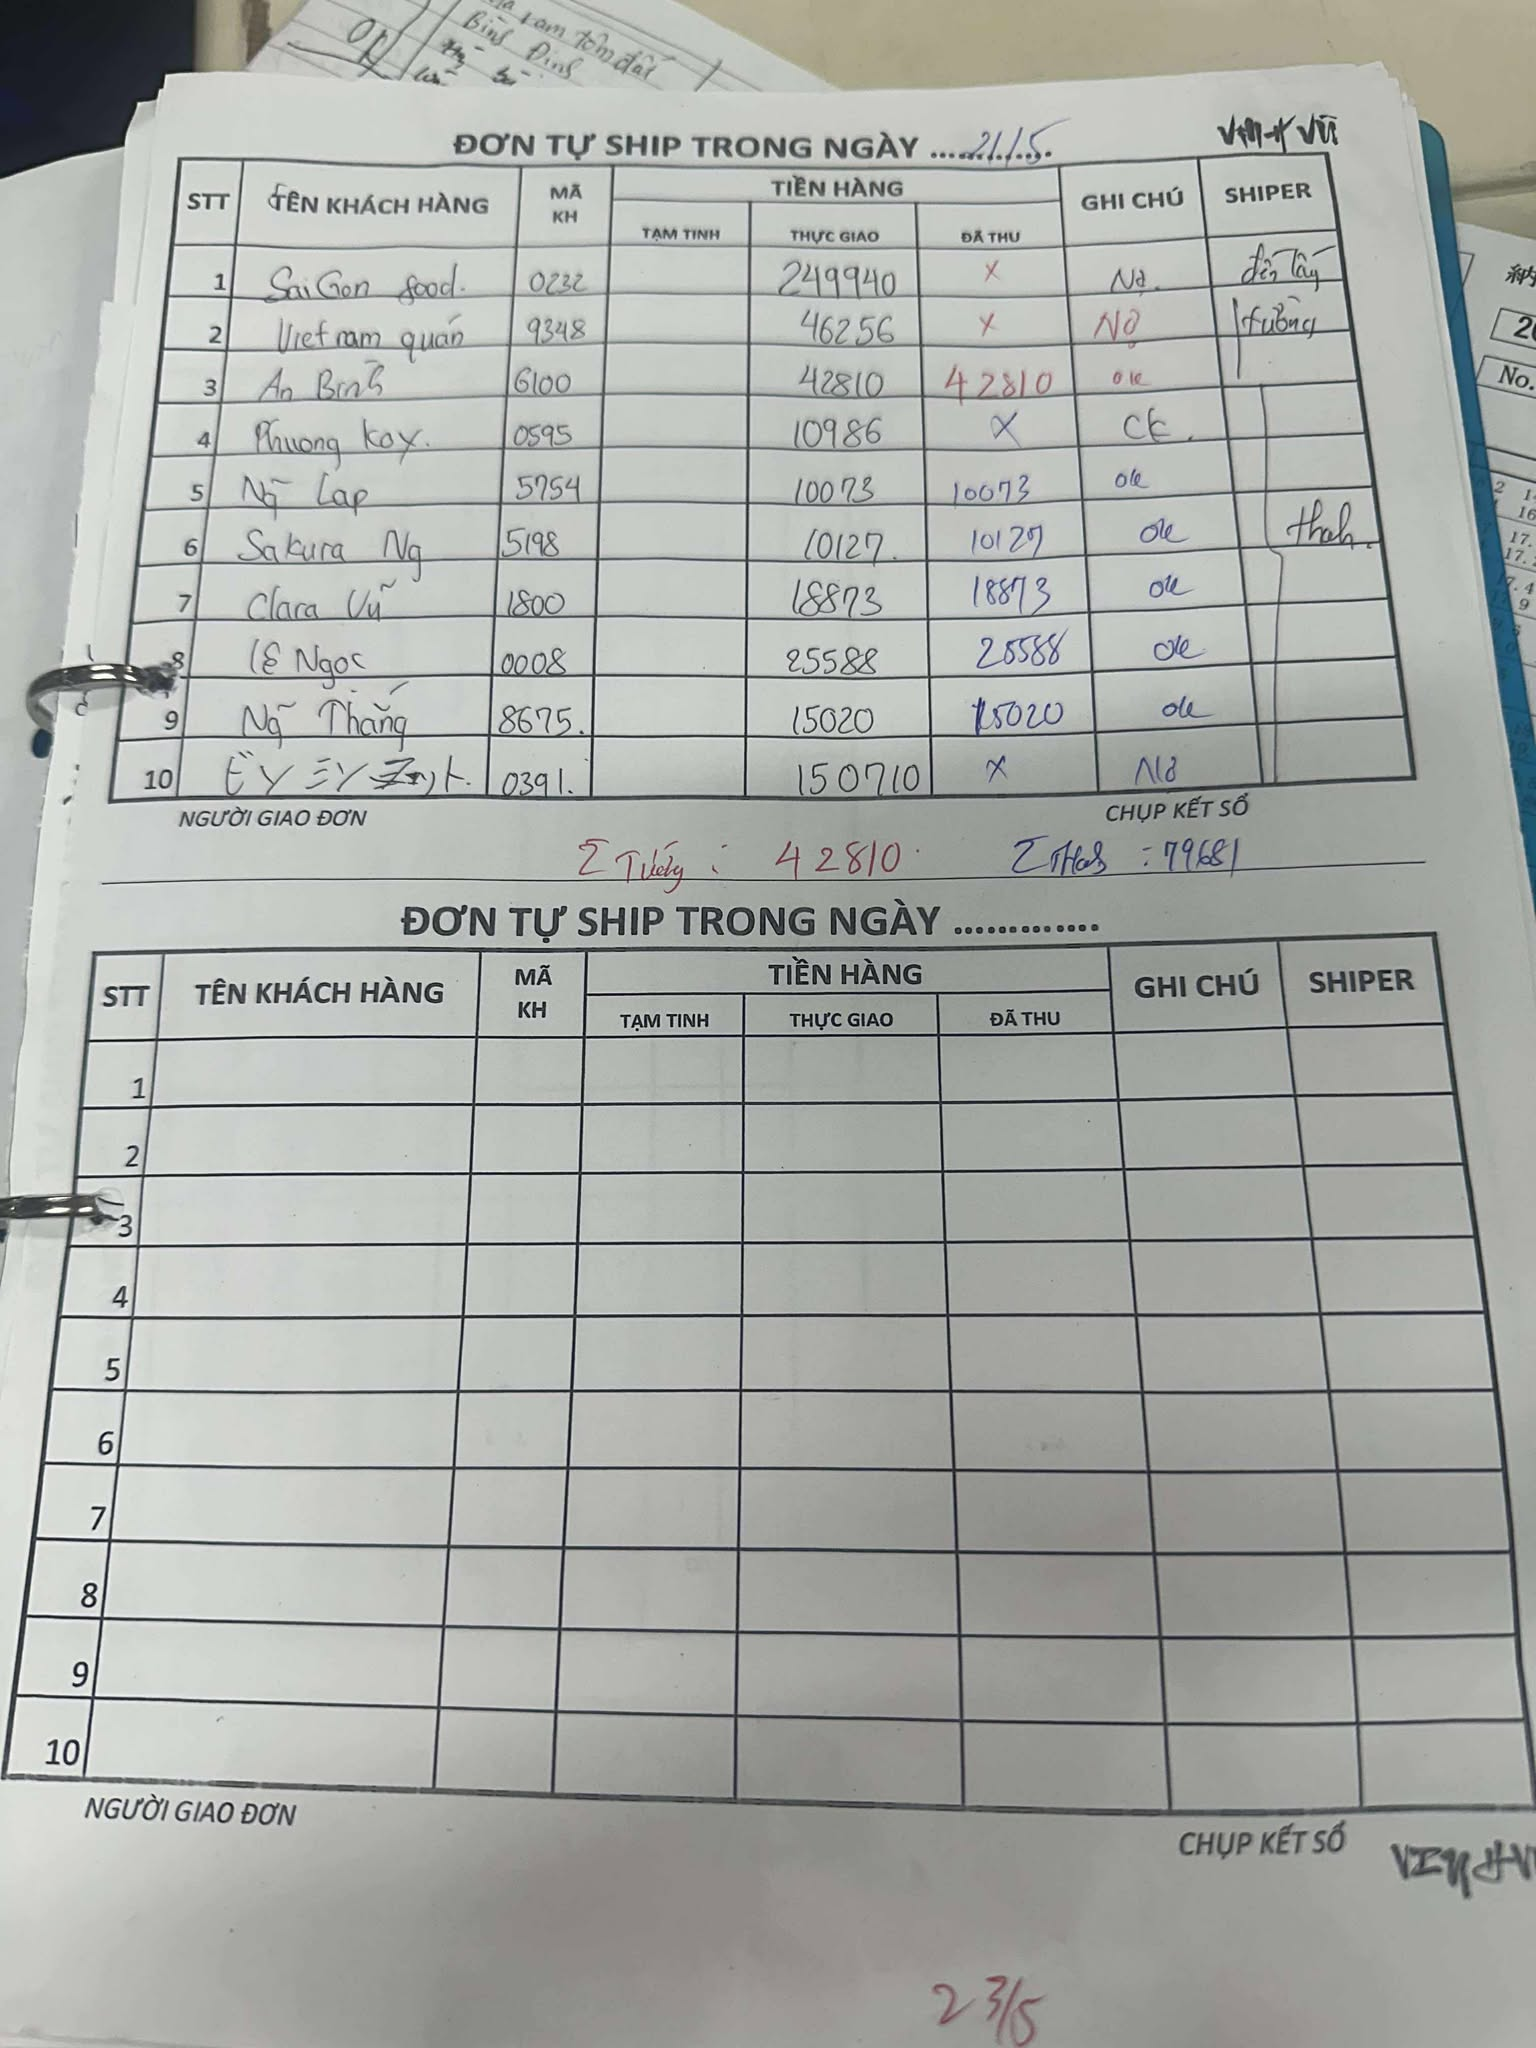 ram tôm đất
Bình Định
ĐƠN TỰ SHIP TRONG NGÀY ...21/5...
STT TÊN KHÁCH HÀNG MÃ KH TIỀN HÀNG GHI CHÚ SHIPER
TẠM TINH THỰC GIAO ĐÃ THU
1 SaiGon food. 0232 249940 x Nợ. đến lấy
2 Vietnam quán 9348 46256 x Nợ tường
3 An Bình 6100 42810 42810 ok
4 Phuong Koy. 0595 10986 x CK.
5 Ng~ Lap 5754 10073 10073 ok
6 Sakura Ng 5198 10127. 10127 ok thah.
7 Clara Vũ 1800 18873 18873 ok
8 Lê Ngoc 0008 25588 25588 ok
9 Ng~ Thắng 8675. 15020 15020 ok
10 0391. 150710 x Nợ
NGƯỜI GIAO ĐƠN CHỤP KẾT SỐ
Σ Tường : 42810. Σ Thah : 79681
ĐƠN TỰ SHIP TRONG NGÀY .............
STT TÊN KHÁCH HÀNG MÃ KH TIỀN HÀNG GHI CHÚ SHIPER
TẠM TINH THỰC GIAO ĐÃ THU
1
2
3
4
5
6
7
8
9
10
NGƯỜI GIAO ĐƠN CHỤP KẾT SỐ
23/5
納
No.